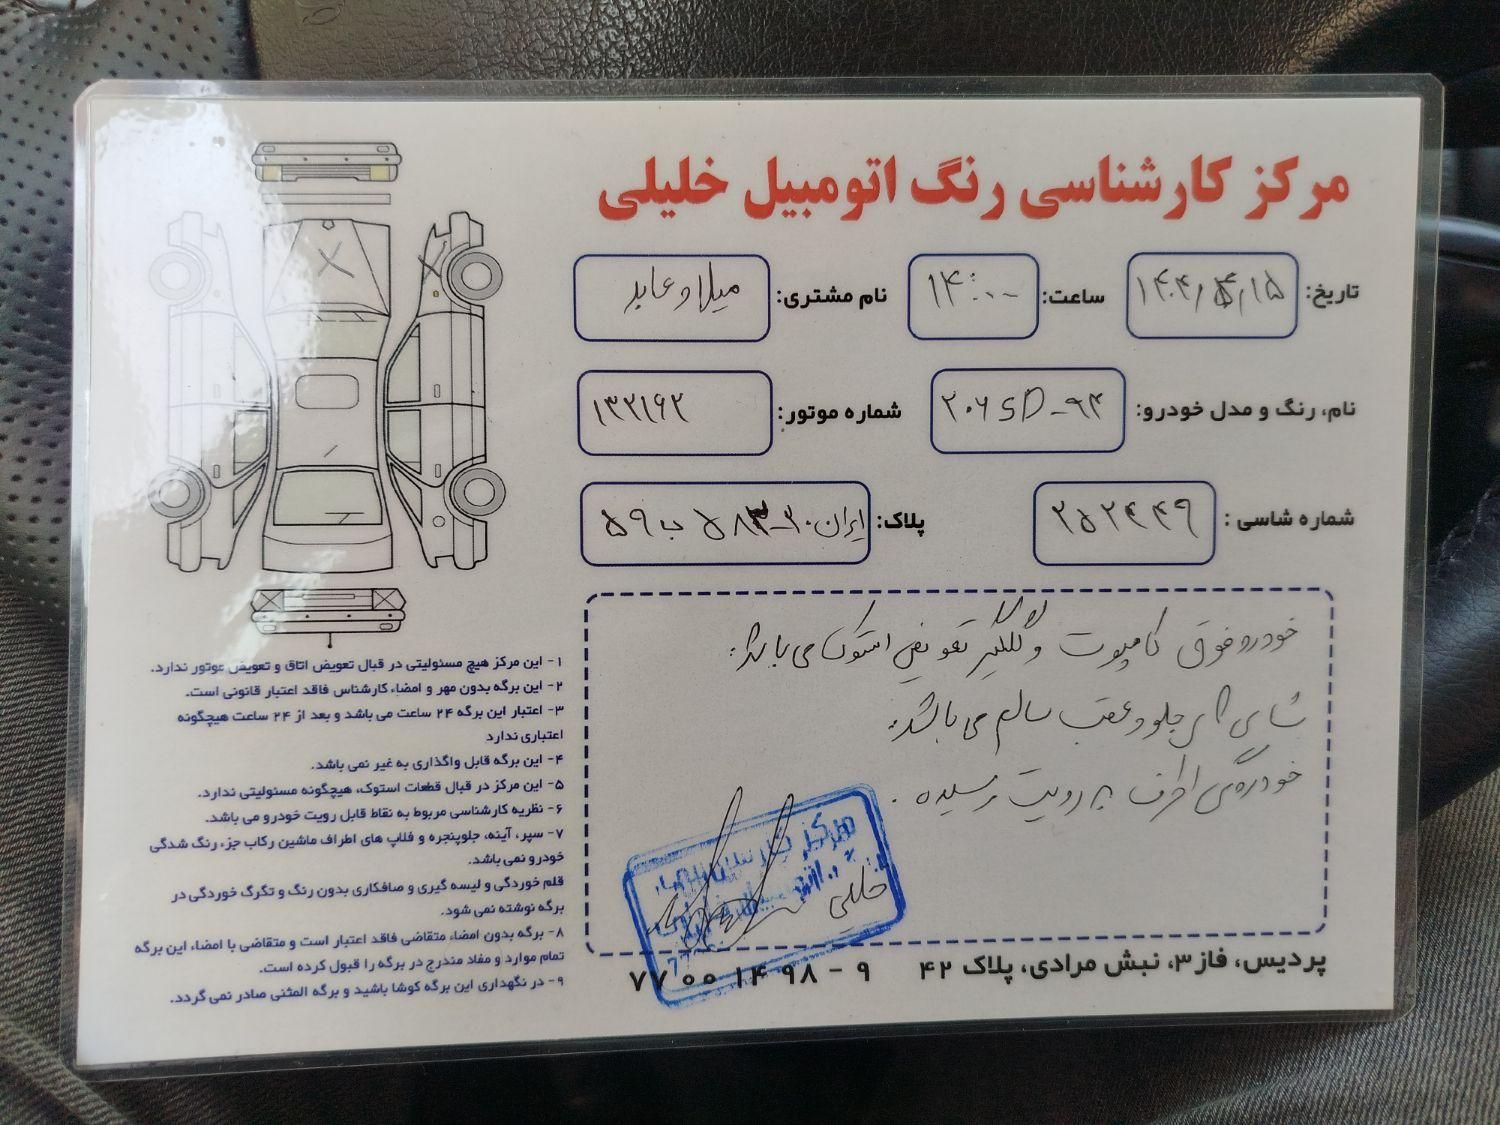 مرکز کارشناسی رنگ اتومبیل خلیلی
تاریخ: ۱۴۰۴/۴/۱۵
ساعت: ۱۴:۰۰
نام مشتری: میلاد عابد
نام، رنگ و مدل خودرو: ۲۰۶ SD - ۹۴
شماره موتور: ۱۳۲۱۶۲
شماره شاسی: ۲۵۲۴۴۹
پلاک: ایران ۲۰ - ۵۸۳ ب ۵۹
خودرو فوق کاپوت و گلگیر تعویض استوک می باشد.
شاسی های جلو و عقب سالم می باشد.
خوردگی اطراف به رویت رسیده.
خلیلی
پردیس، فاز ۳، نبش مرادی، پلاک ۴۲
۷۷ ۰۰ ۱۴ ۹۸ - ۹
۱- این مرکز هیچ مسئولیتی در قبال تعویض اتاق و تعویض موتور ندارد.
۲- این برگه بدون مهر و امضاء کارشناس فاقد اعتبار قانونی است.
۳- اعتبار این برگه ۲۴ ساعت می باشد و بعد از ۲۴ ساعت هیچگونه
اعتباری ندارد
۴- این برگه قابل واگذاری به غیر نمی باشد.
۵- این مرکز در قبال قطعات استوک، هیچگونه مسئولیتی ندارد.
۶- نظریه کارشناسی مربوط به نقاط قابل رویت خودرو می باشد.
۷- سپر، آینه، جلوپنجره و فلاپ های اطراف ماشین رکاب جزء رنگ شدگی
خودرو نمی باشد.
قلم خوردگی و لیسه گیری و صافکاری بدون رنگ و تگرگ خوردگی در
برگه نوشته نمی شود.
۸- برگه بدون امضاء متقاضی فاقد اعتبار است و متقاضی با امضاء این برگه
تمام موارد و مفاد مندرج در برگه را قبول کرده است.
۹- در نگهداری این برگه کوشا باشید و برگه المثنی صادر نمی گردد.